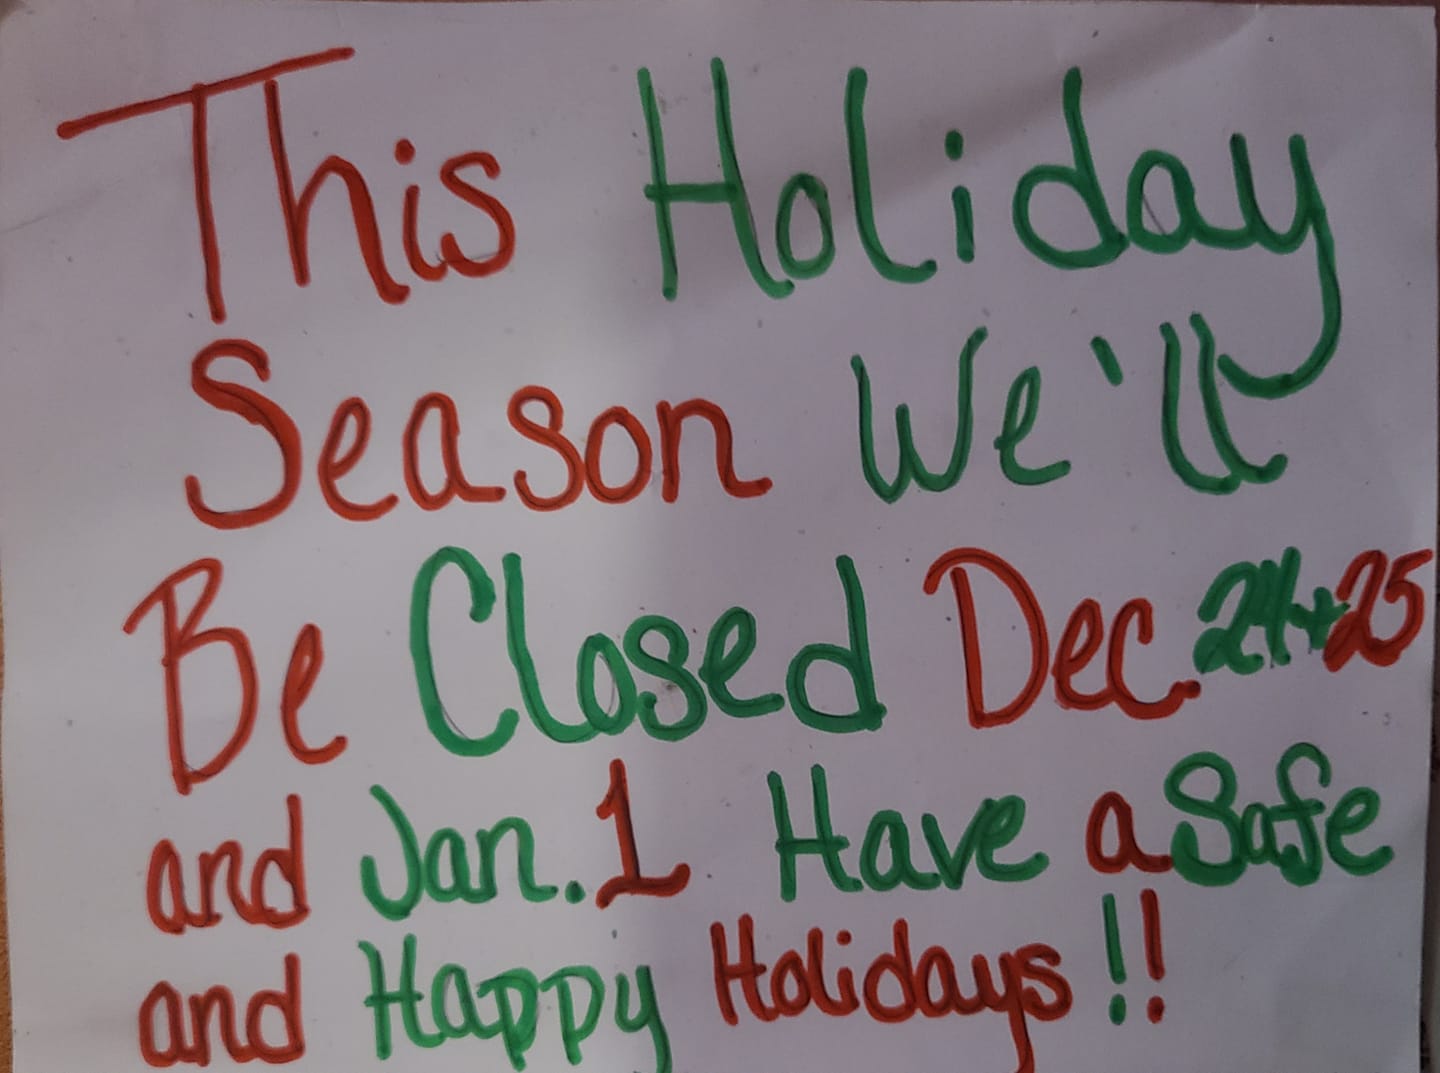 This Holiday
Season We'll
Be Closed Dec. 24+25
and Jan. 1 Have a Safe
and Happy Holidays!!